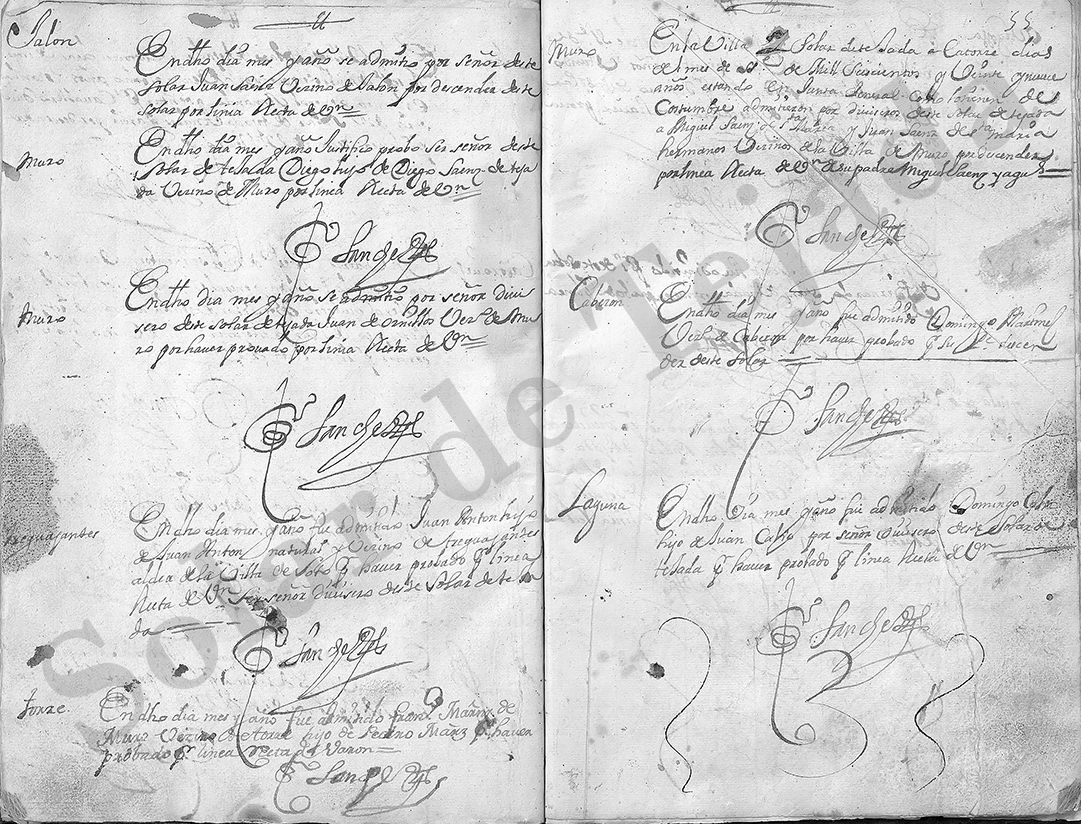 Jalon
En dho dia mes y año se admitio por señor deste
Solar Juan Saenz Vezino de Jalon por descender deste
solar por linia Recta de Vn
Muro
En dho dia mes y año Justifico probo ser señor deste
Solar de tejada Diego hijo de Diego Saenz de teja
da Vezino de Muro por linia Recta de Vn
Sanchez
Muro
En dho dia mes y año se admitio por señor divi
sero deste solar de tejada Juan de Vezo de Mu
ro por haver provado por linia Recta de Vn
Sanchez
treguajantes
En dho dia mes y año fue admitido Juan Anton hijo
de Juan Anton natural y Vezino de treguajantes
aldea de la Villa de Soto q haver probado q linea
Recta de Vn ser señor divisero deste Solar de teja
da
Sanchez
torre
En dho dia mes y año fue admitido franco Marnz de
Muro Vezino de torre hijo de Pedro Marnz q haver
probado q linea recta de Varon
Sanchez
55
Muro
En la Villa Solar de tejada a Catorze dias
del mes de de Mill Seiscientos y Veinte y nueve
años estando en Junta General Como lo tienen de
Costumbre admitieron por diviseros deste solar de tejada
a Miguel Saenz de sta Maria y Juan Saenz de sta maria
hermanos Vezinos de la Villa de Muro por descender
por linea Recta de Vn de su padre Miguel Saenz
Sanchez
Cabezon
En dho dia mes y año fue admitido Domingo Martinez
Vezo de Cabezon por haver probado q ser
der deste solar
Sanchez
Laguna
En dho dia mes y año fue admitido Domingo
hijo de Juan Calvo por señor divisero deste Solar de
tejada q haver probado q linea Recta de Vn
Sanchez
Solar de Tejada